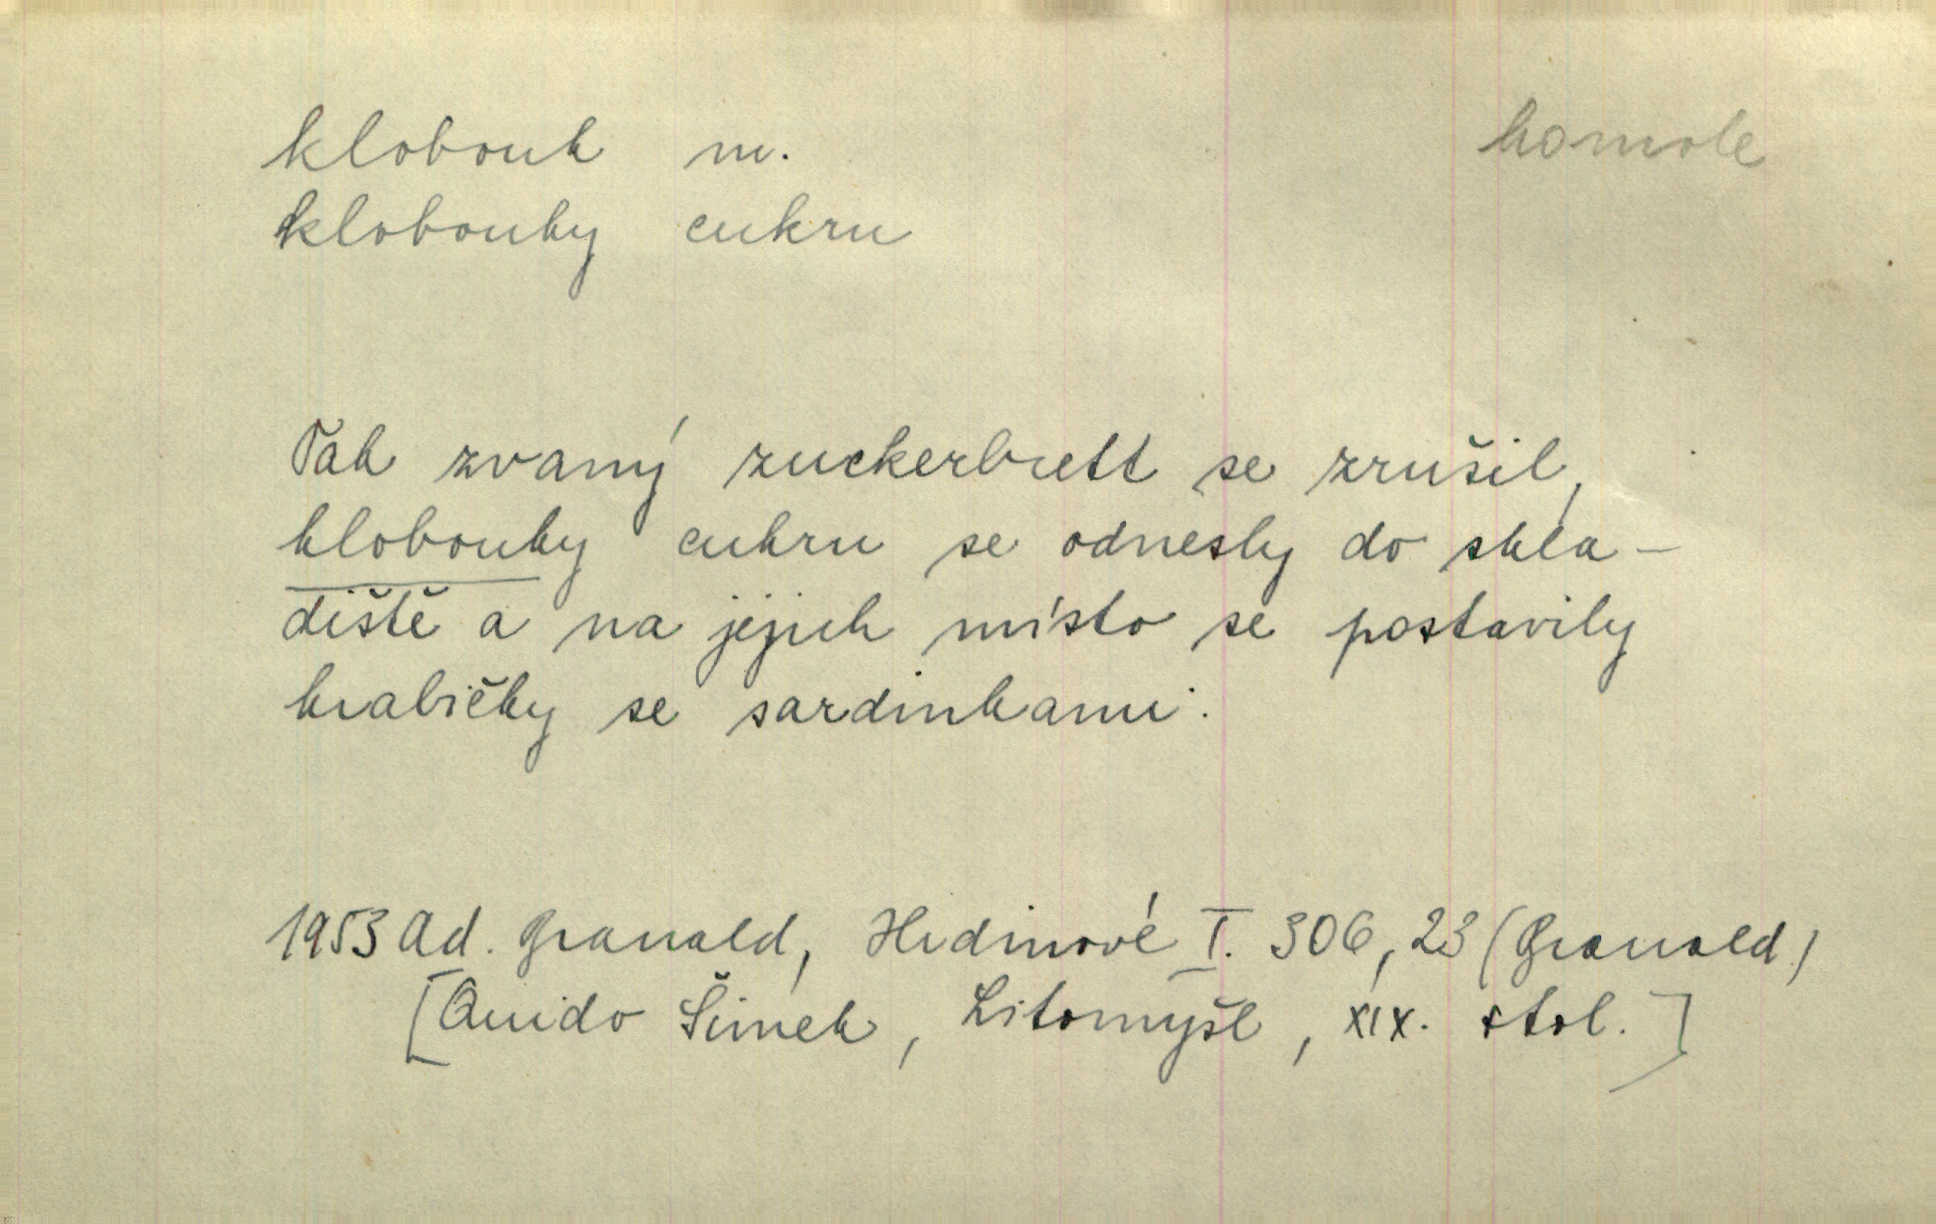 klobouk m. homole
klobouky cukru
Tak zvaný zuckerbrett se zrušil,
klobouky cukru se odnesly do skla-
diště a na jejich místo se postavily
krabičky se sardinkami.
1953 Ad. Branald, Hrdinové I. 306, 23 (Branald)
[Quido Šimek, Litomyšl, XIX. stol.]